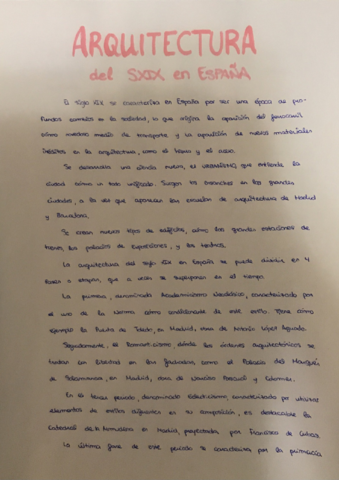 ARQUITECTURA
del SXIX en ESPAÑA
El siglo XIX se caracteriza en España por ser una época de pro-
fundos cambios en la sociedad, lo que origina la aparición del ferrocarril
cómo medio de transporte y la aparición de nuevos materiales
inéditos en la arquitectura, como el hierro y el acero.
Se desarrolla una ciencia nueva, el URBANISMO, que entiende la
ciudad cómo un todo unificado. Surgen los ensanches en las grandes
ciudades, a la vez que aparecen las escuelas de arquitectura de Madrid
y Barcelona.
Se crean nuevos tipos de edificios, cómo las grandes estaciones de
trenes, los palacios de Exposiciones, y los teatros.
La arquitectura del siglo XIX en España se puede dividir en 4
fases o etapas, que a veces se superponen en el tiempo.
La primera, denominada Academicismo Neoclásico, caracterizado por
el uso de la Norma cómo condicionante de este estilo. Tiene cómo
ejemplo la Puerta de Toledo, en Madrid, obra de Antonio López Aguado.
Seguidamente, el Romanticismo dónde los órdenes arquitectónicos se
tratan con libertad en las fachadas como el Palacio del Marqués
de Salamanca, en Madrid, obra de Narciso Pascual y Colomer.
En el tercer periodo, denominado Eclecticismo, caracterizado por utilizar
elementos de estilos diferentes en su composición, es destacable la
Catedral de la Almudena en Madrid, proyectada por Francisco de Cubas.
La última fase de este periodo se caracteriza por la primacía